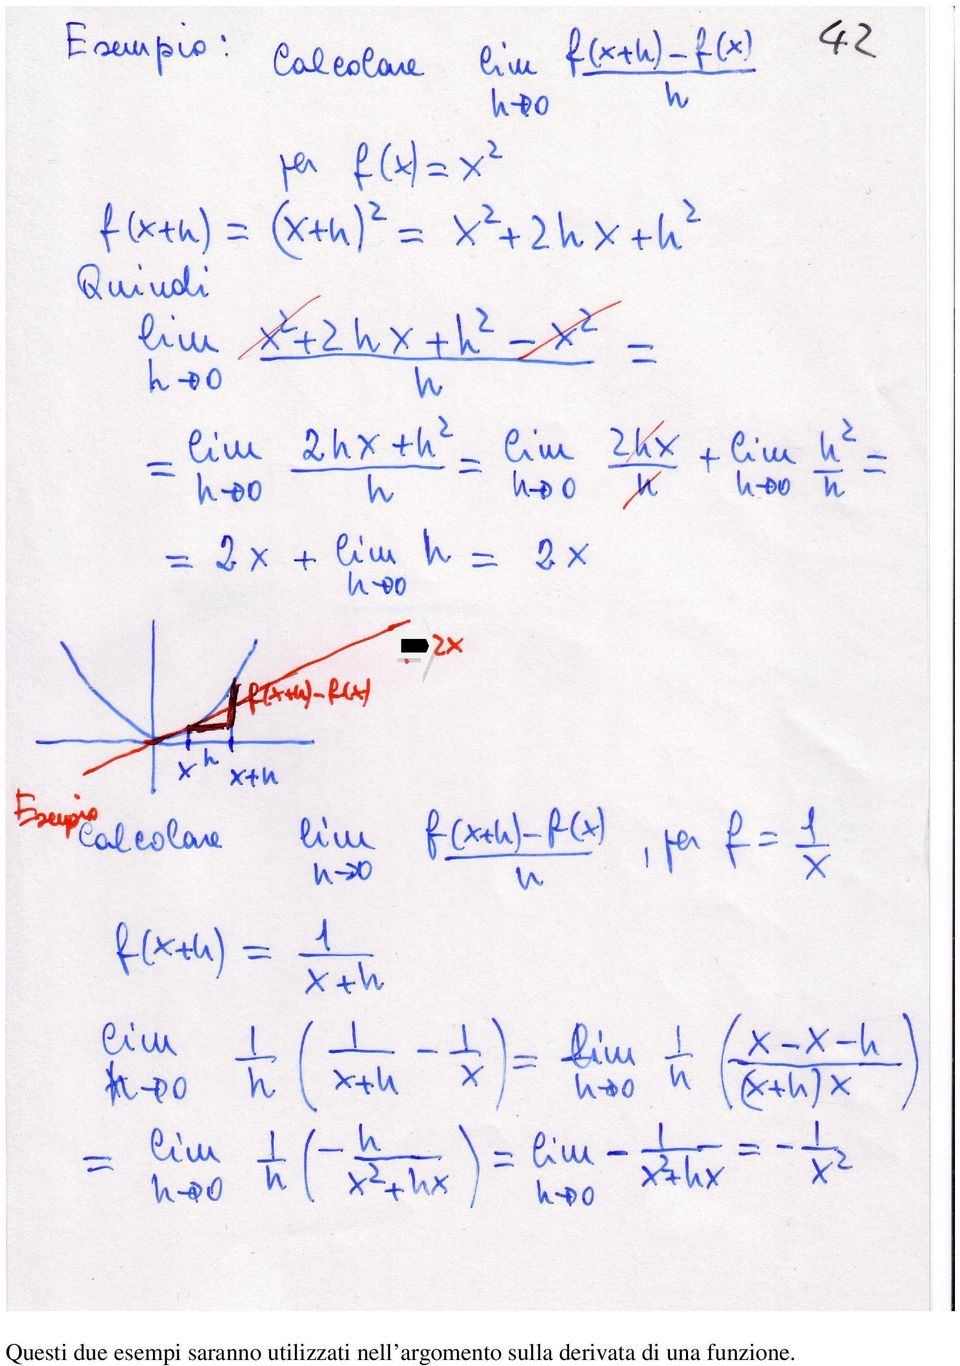 Esempio: Calcolare lim h→0 (f(x+h) - f(x))/h 42
per f(x) = x²
f(x+h) = (x+h)² = x² + 2hx + h²
Quindi
lim h→0 (x² + 2hx + h² - x²)/h =
= lim h→0 (2hx + h²)/h = lim h→0 2hx/h + lim h→0 h²/h =
= 2x + lim h→0 h = 2x
2x
f(x+h) - f(x)
x h x+h
Esempio
Calcolare lim h→0 (f(x+h) - f(x))/h , per f = 1/x
f(x+h) = 1/(x+h)
lim h→0 1/h (1/(x+h) - 1/x) = lim h→0 1/h ((x - x - h)/((x+h)x))
= lim h→0 1/h (- h/(x² + hx)) = lim h→0 - 1/(x² + hx) = - 1/x²
Questi due esempi saranno utilizzati nell'argomento sulla derivata di una funzione.